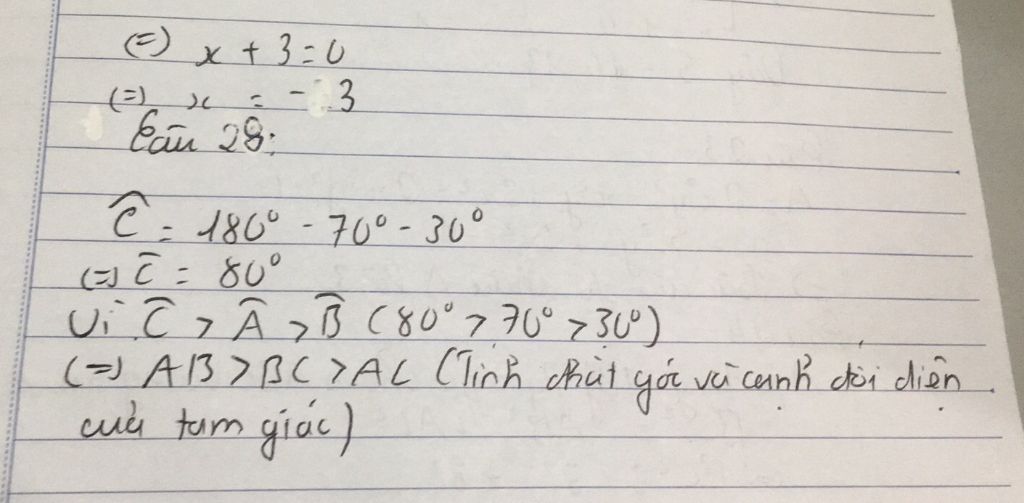 (=) x + 3 = 0
(=) x = - 3
Câu 28:
Ĉ = 180° - 70° - 30°
(=) C̄ = 80°
Vì Ĉ > Â > B̂ (80° > 70° > 30°)
(=) AB > BC > AC (Tính chất góc và cạnh đối diện
của tam giác)